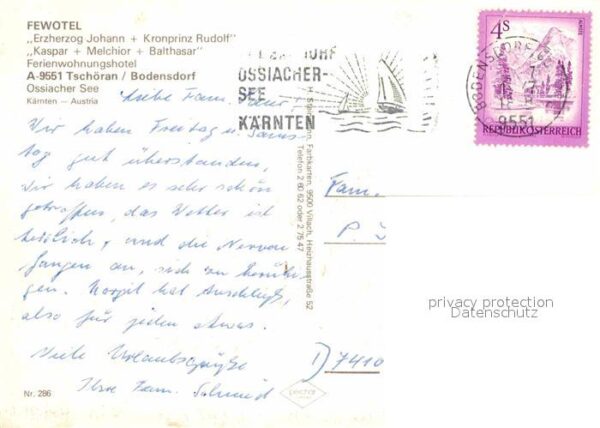 FEWOTEL
„Erzherzog Johann + Kronprinz Rudolf"
„Kaspar + Melchior + Balthasar"
Ferienwohnungshotel
A-9551 Tschöran / Bodensdorf
Ossiacher See
Kärnten – Austria
OSSIACHER-
SEE
KÄRNTEN
4S
REPUBLIK ÖSTERREICH
BODENSDORF
9551
Liebe Fam.
Wir haben Freitag u. Sams-
tag gut überstanden,
Wir haben es sehr schön
getroffen, das Wetter ist
herrlich, und die Nerven
fangen an, sich zu beruhi-
gen. Margit hat Anschluß,
also für jeden etwas.
Viele Urlaubsgrüße
Ihre Fam. Schmid
Farbkarten, 9500 Villach, Heidenfeldstraße 52
Telefon 2 80 62 oder 2 75 47
Fam.
P.
D 7410
privacy protection
Datenschutz
Nr. 286